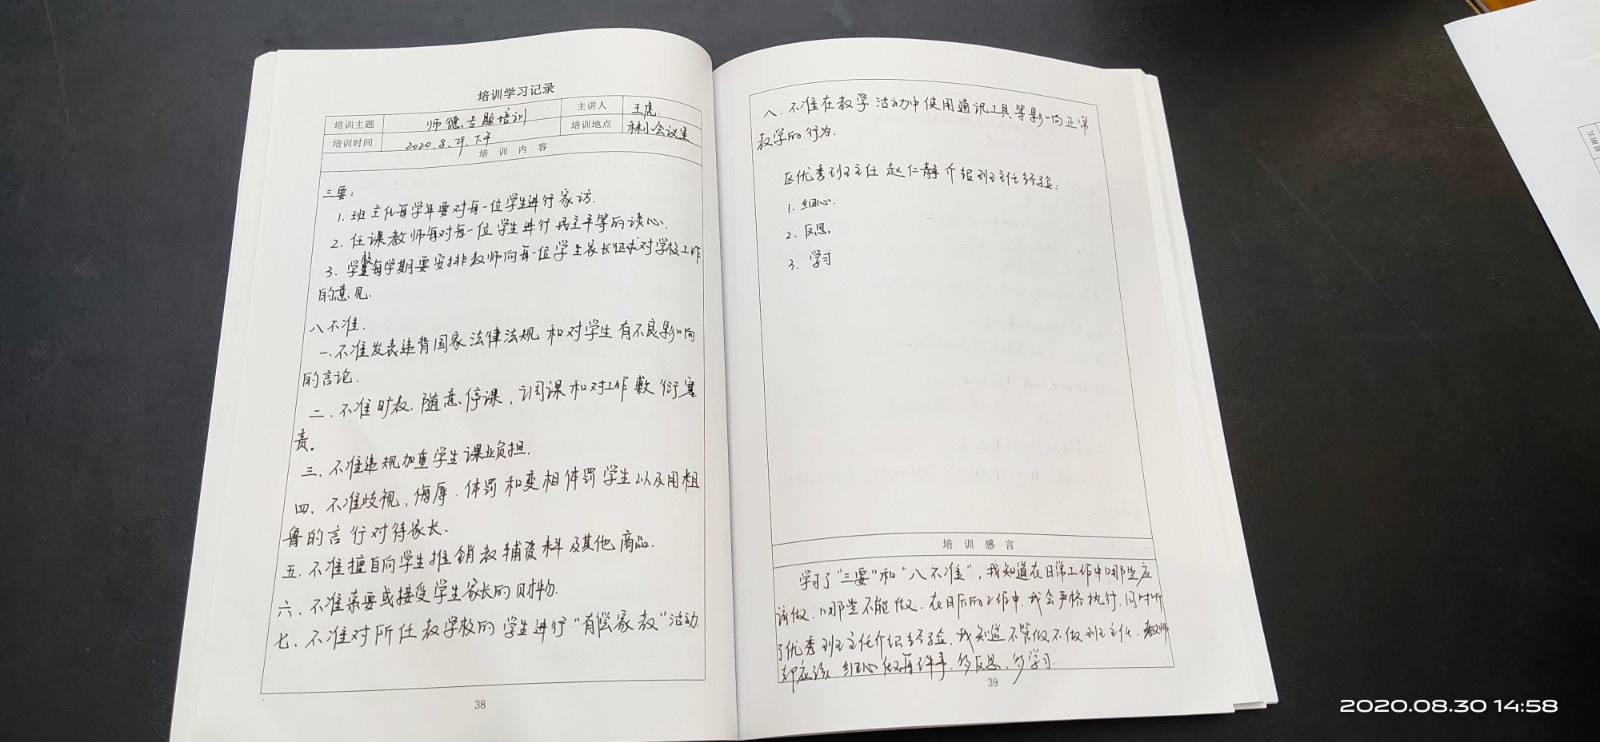 培训学习记录
培训主题 师德专题培训 主讲人 王虎
培训时间 2020.8.29.下午 培训地点 林小会议室
培训内容
三要：
1. 班主任每学年要对每一位学生进行家访.
2. 任课教师每对每一位学生进行民主平等的谈心.
3. 学校每学期要安排教师向每一位学生家长征求对学校工作
的意见.
八不准.
一.不准发表违背国家法律法规和对学生有不良影响
的言论.
二.不准旷教.随意停课，调课和对工作敷衍塞
责。
三.不准违规加重学生课业负担.
四.不准歧视，侮辱.体罚和变相体罚学生以及用粗
鲁的言行对待家长.
五.不准擅自向学生推销教辅资料及其他商品.
六.不准索要或接受学生家长的财物.
七.不准对所任教学校的学生进行"有偿家教"活动.
38
八.不准在教学活动中使用通讯工具等影响正常
教学的行为.
区优秀班主任赵仁静介绍班主任经验：
1. 细心.
2. 反思。
3. 学习
培训感言
学习了"三要"和"八不准"，我知道在日常工作中哪些应
该做.哪些不能做.在日后的工作中.我会严格执行.同时听
了优秀班主任介绍经验.我知道不管做不做班主任.教师
都应该细心做每件事.多反思.多学习.
39
2020.08.30 14:58